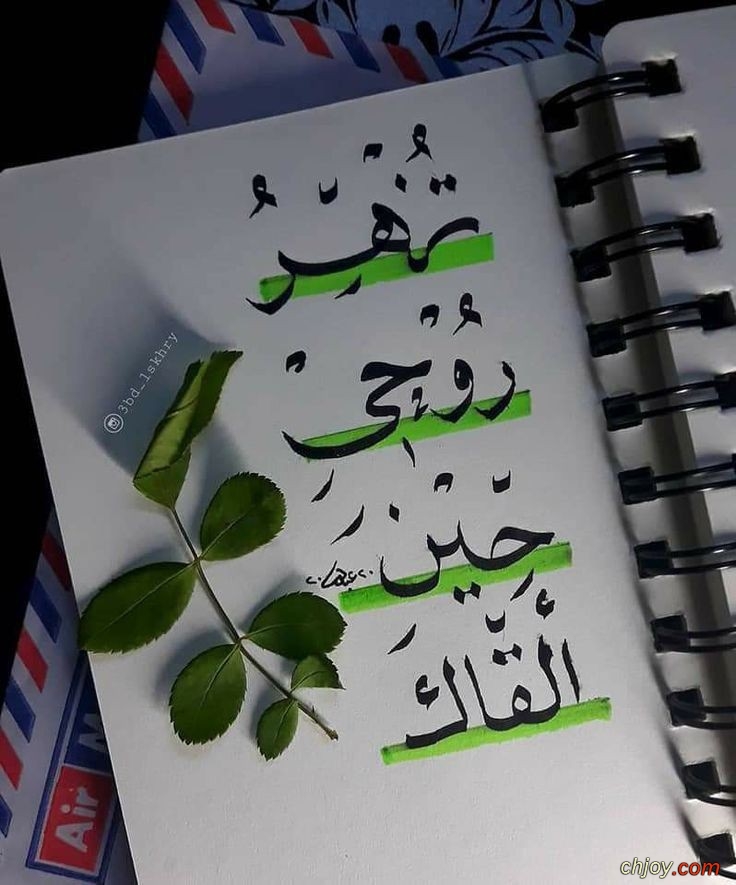 تُزهرُ
رُوْحيْ
حِيْن
ألقاكَ
3bd_1skhry
Air M
chjoy.com